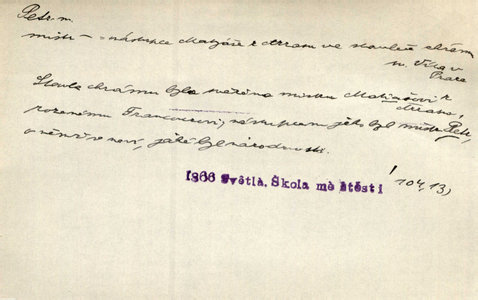 Petr. m.
mistr – = nástupce Matyáše z Arrasu ve stavbě chrámu
sv. Víta v
Praze
Stavba chrámu byla svěřena mistru Matiášovi z
Arrasu,
rozenému Francouzovi; nástupcem jeho byl mistr Petr,
o němž se neví, jaké byl národnosti.
1966 Světlá, Škola mé štěstí / 104, 13,